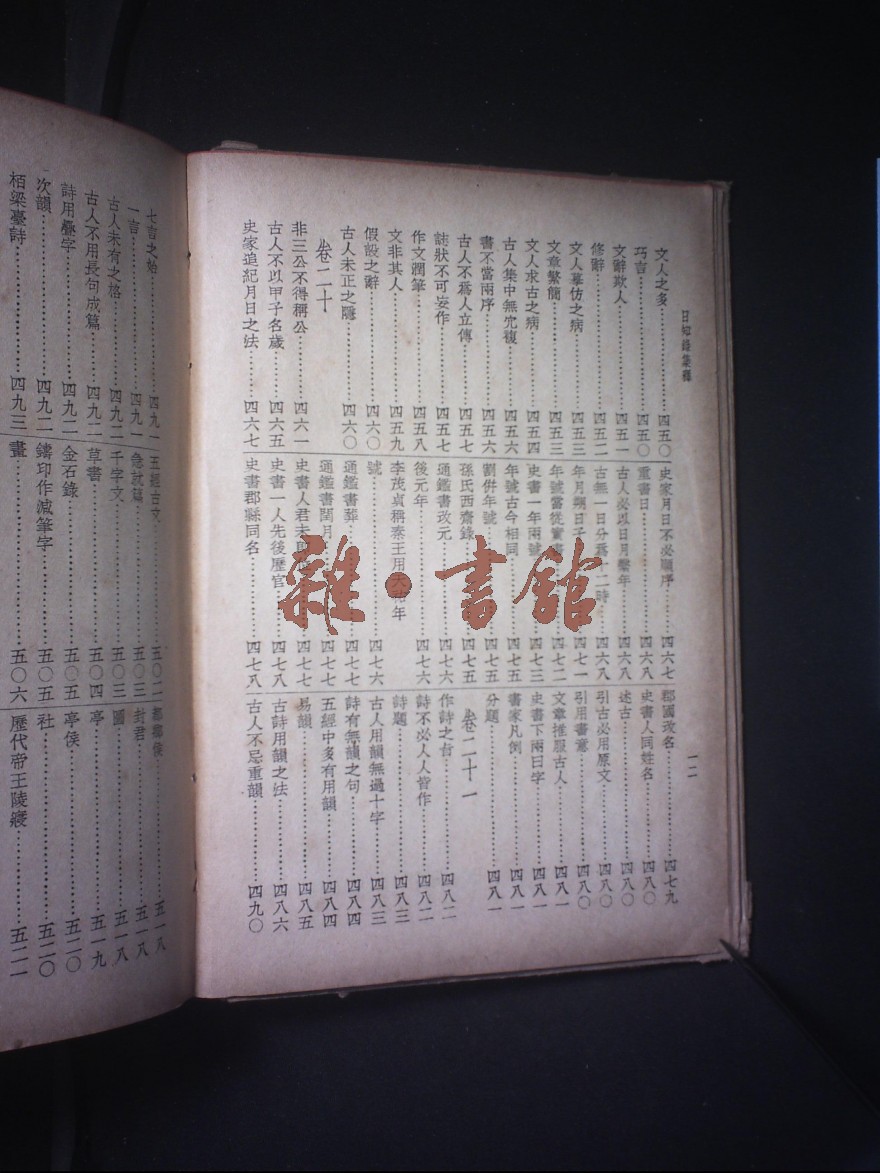 日知錄集釋
一二
文人之多……四五〇
巧言……四五〇
文辭欺人……四五一
修辭……四五二
文人摹仿之病……四五三
文章繁簡……四五三
文人求古之病……四五四
古人集中無冗複……四五六
書不當兩序……四五六
古人不爲人立傳……四五七
誌狀不可妄作……四五七
作文潤筆……四五八
文非其人……四五九
假設之辭……四六〇
古人未正之隱……四六〇
卷二十
非三公不得稱公……四六一
古人不以甲子名歲……四六五
史家追紀月日之法……四六七
史家月日不必順序……四六七
重書日……四六八
古人必以日月繫年……四六八
古無一日分爲十二時……四六八
年月朔日子……四七一
年號當從實書……四七二
史書一年兩號……四七三
年號古今相同……四七五
割併年號……四七五
孫氏西齋錄……四七五
通鑑書改元……四七六
後元年……四七六
李茂貞稱秦王用天祐年
號……四七六
通鑑書葬……四七七
通鑑書閏月……四七七
史書人君未即位……四七七
史書一人先後歷官……四七八
史書郡縣同名……四七八
郡國改名……四七九
史書人同姓名……四八〇
述古……四八〇
引古必用原文……四八〇
引用書意……四八〇
文章推服古人……四八一
史書下兩曰字……四八一
書家凡例……四八一
分題……四八一
卷二十一
作詩之旨……四八二
詩不必人人皆作……四八二
詩題……四八三
古人用韻無過十字……四八三
詩有無韻之句……四八四
五經中多有用韻……四八四
易韻……四八五
古詩用韻之法……四八六
古人不忌重韻……四九〇
七言之始……四九一
一言……四九一
古人未有之格……四九二
古人不用長句成篇……四九二
詩用疊字……四九二
次韻……四九二
栢梁臺詩……四九三
五經古文……五〇二
急就篇……五〇三
千字文……五〇三
草書……五〇四
金石錄……五〇五
鑄印作減筆字……五〇五
畫……五〇六
都鄉侯……五一八
封君……五一八
圖……五一八
亭……五一九
亭侯……五二〇
社……五二〇
歷代帝王陵寢……五二一
雜·書館